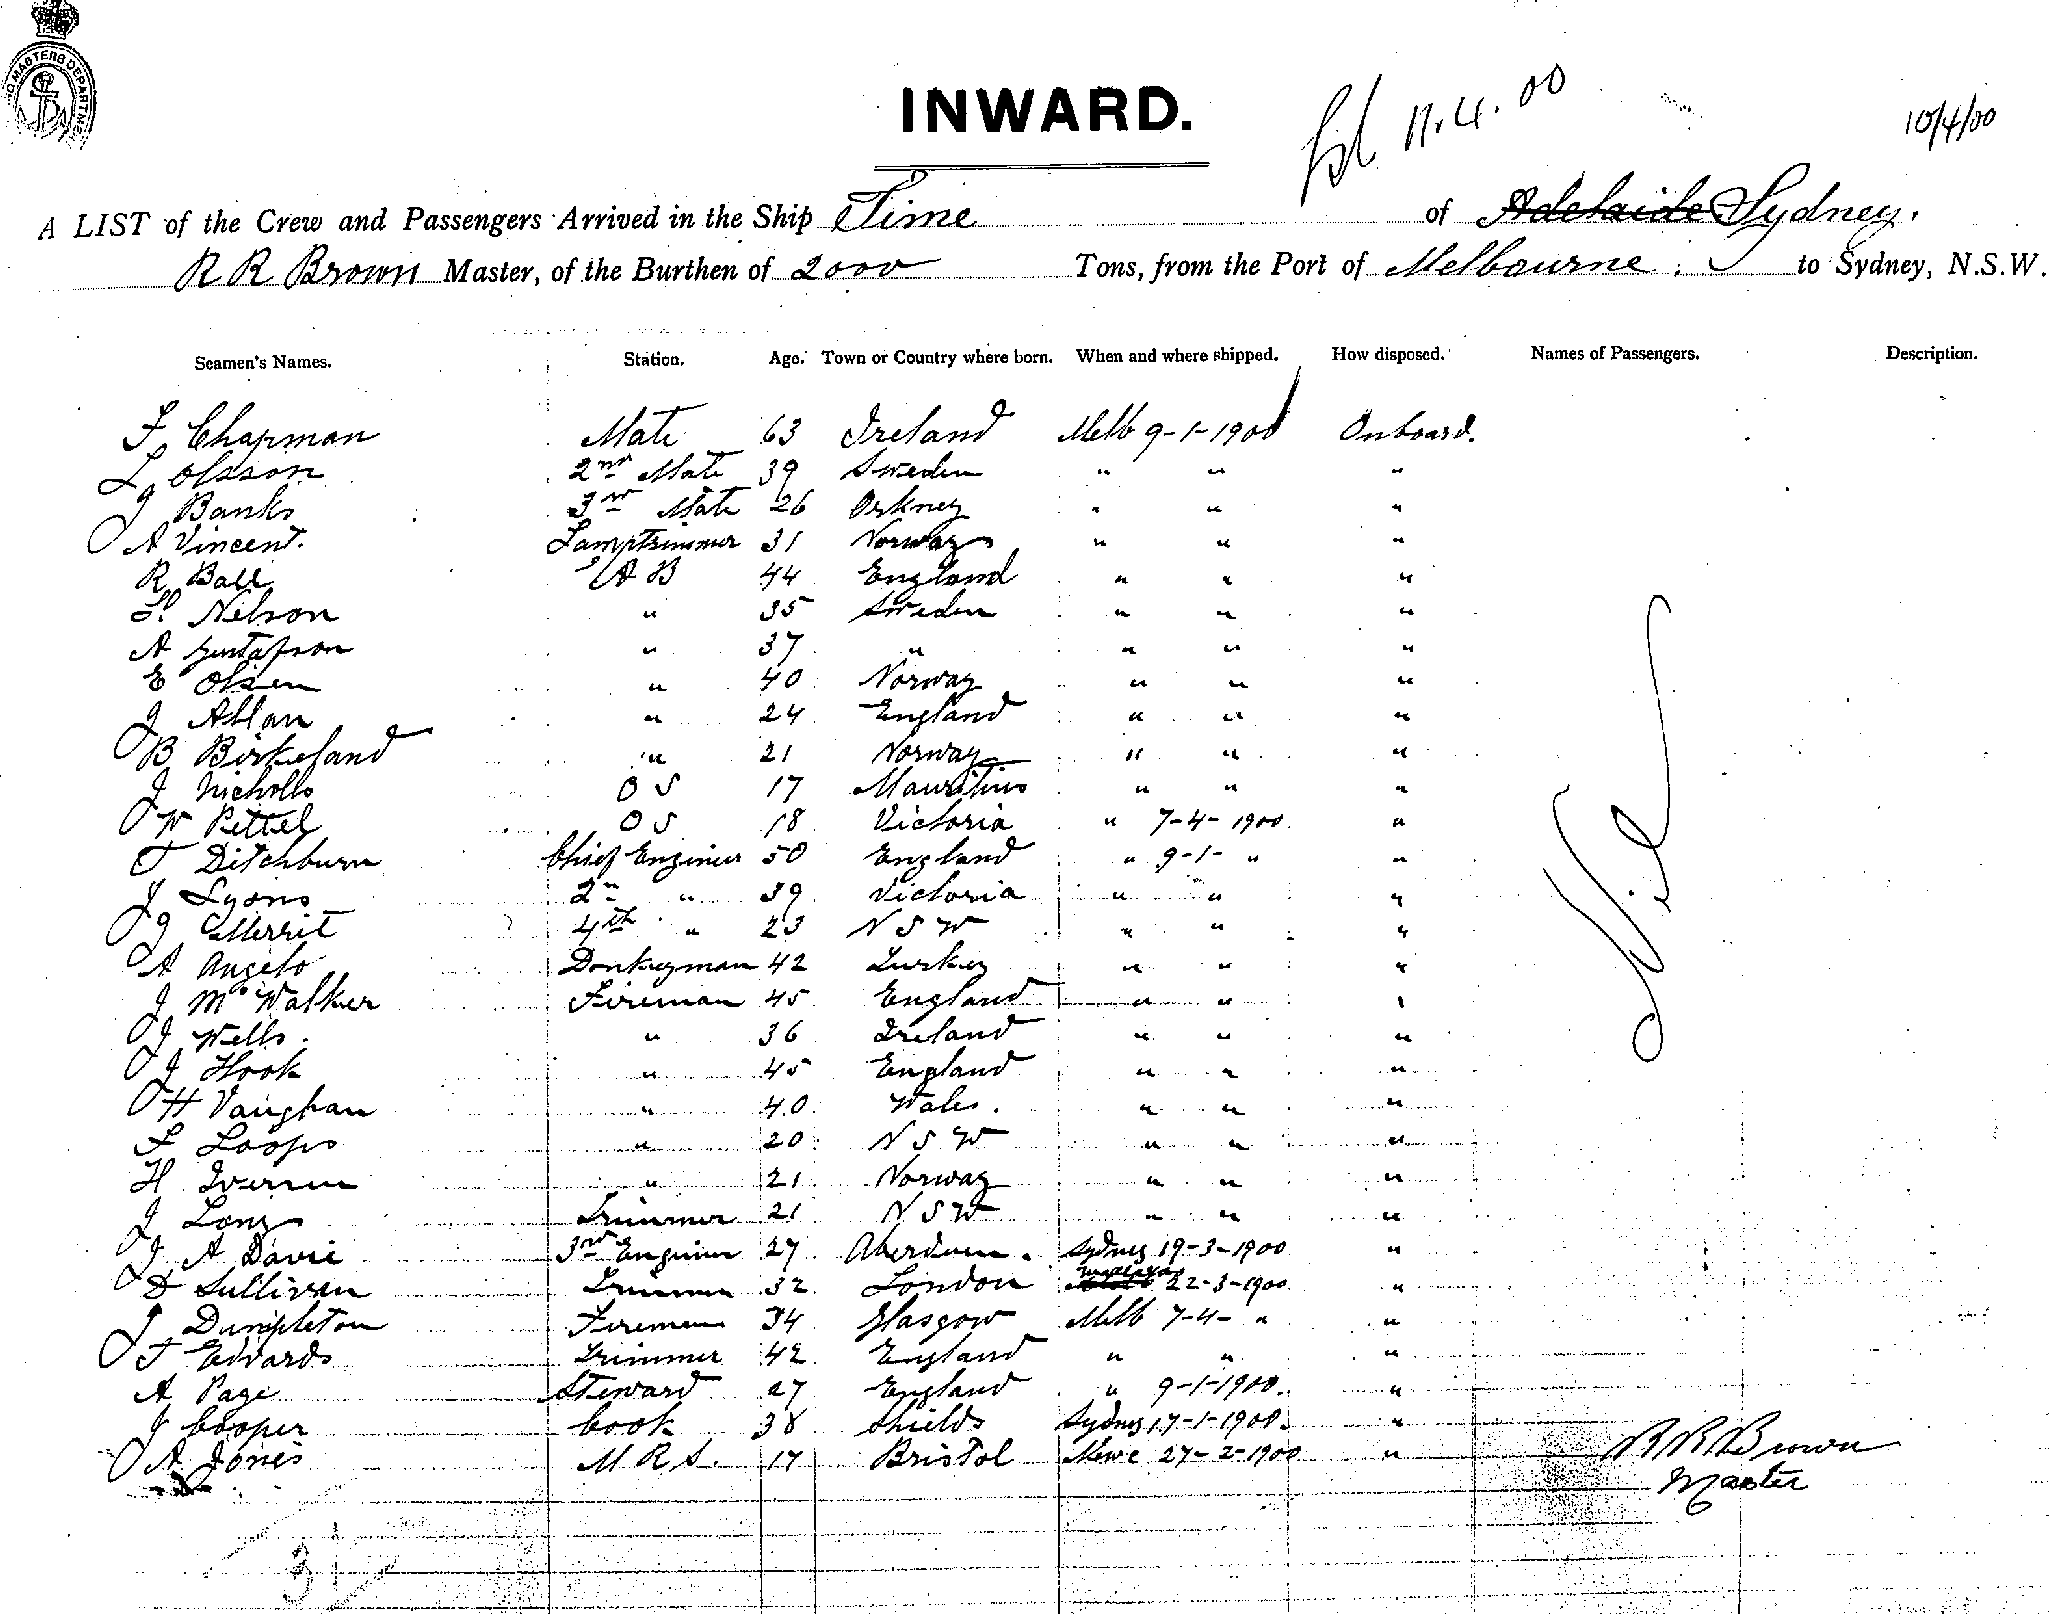 MASTERS DEPARTME
INWARD.
11.4.00
10/4/00
A LIST of the Crew and Passengers Arrived in the Ship Time of Adelaide Sydney.
R R Brown Master, of the Burthen of 2000 Tons, from the Port of Melbourne to Sydney, N.S.W.
Seamen's Names. Station. Age. Town or Country where born. When and where shipped. How disposed. Names of Passengers. Description.
F Chapman Mate 63 Ireland Melb 9-1-1900 Onboard.
L Olsson 2nd Mate 39 Sweden " " "
J Banks 3rd Mate 26 Orkney " " "
A Vincent. Lamptrimmer 31 Norway " " "
R Ball A B 44 England " " "
Nelson " 35 Sweden " " "
A Gustafson " 37 " " " "
E Olsen " 40 Norway " " "
J Allan " 24 England " " "
B Birkeland " 21 Norway " " "
J Nicholls O S 17 Mauritius " " "
W Pettel O S 18 Victoria " 7-4-1900 "
T Ditchburn Chief Engineer 50 England " 9-1- " "
J Lyons 2nd " 39 Victoria " " "
J Merrit 4th " 23 N S W " " "
A Angelo Donkeyman 42 Turkey " " "
J McWalker Fireman 45 England " " "
J Wells. " 36 Ireland " " "
J Hook " 45 England " " "
H Vaughan " 40 Wales. " " "
F Loops " 20 N S W " " "
H Iversen " 21 Norway " " "
J Long Trimmer 21 N S W " " "
J A Davie 3rd Engineer 27 Aberdeen. Sydney 19-3-1900 "
D Sullivan Trimmer 32 London 22-3-1900 "
J Dumpleton Fireman 34 Glasgow Melb 7-4- " "
T Edwards Trimmer 42 England " " "
A Page Steward 27 England " 9-1-1900. "
J Cooper Cook 38 Shields Sydney 17-1-1900. "
A Jones M R S. 17 Bristol Newc 27-2-1900 "
Nil
R R Brown
Master
31